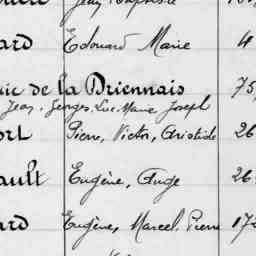 Jean Baptiste
ard Edouard Marie 4
aie de la Driennais 75,
Jean, Georges, Luc, Marie Joseph
ort Pierre, Victor, Aristide 26
ault Eugène, Ange 26
ard Eugène, Marcel, Pierre 172